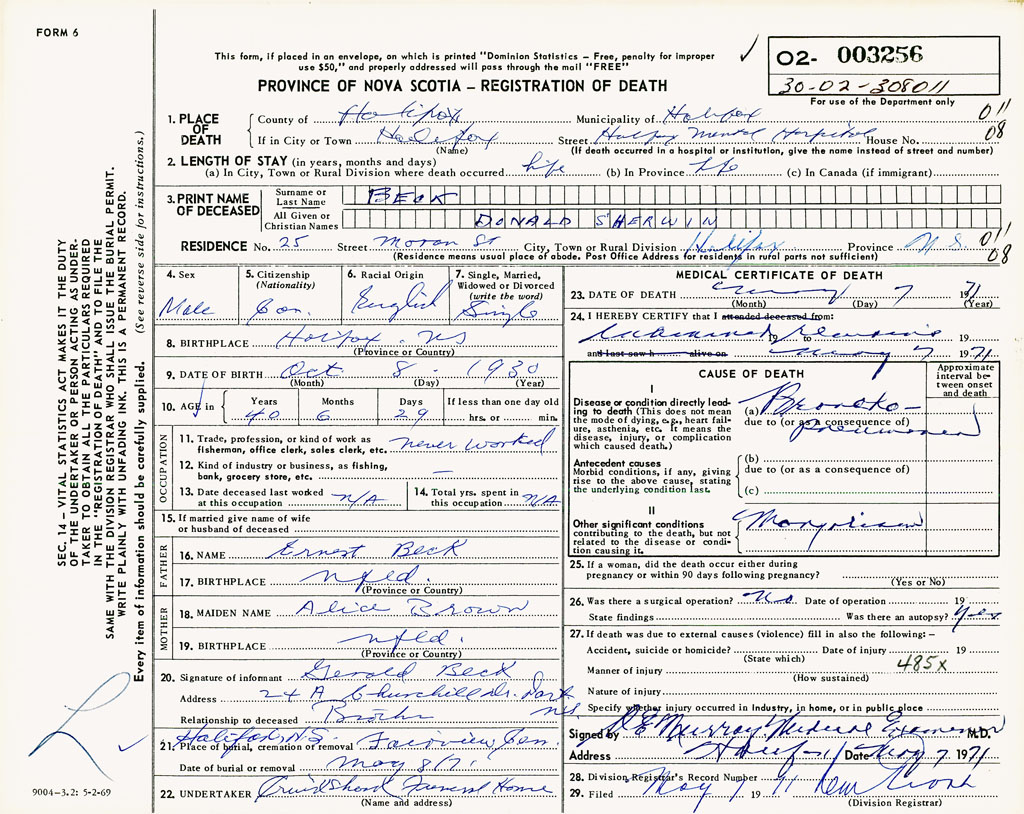 FORM 6
This form, if placed in an envelope, on which is printed "Dominion Statistics – Free, penalty for improper
use $50," and properly addressed will pass through the mail "FREE"
02- 003256
30-02-308011
For use of the Department only
PROVINCE OF NOVA SCOTIA – REGISTRATION OF DEATH
1. PLACE OF DEATH
County of Halifax Municipality of Halifax 011
If in City or Town Halifax Street Halifax Mental Hospital House No. 08
(Name) (If death occurred in a hospital or institution, give the name instead of street and number)
2. LENGTH OF STAY (in years, months and days)
(a) In City, Town or Rural Division where death occurred life (b) In Province life (c) In Canada (if immigrant)
3. PRINT NAME OF DECEASED
Surname or Last Name BECK
All Given or Christian Names DONALD SHERWIN
RESIDENCE No. 25 Street Moran St City, Town or Rural Division Halifax Province N.S. 011
(Residence means usual place of abode. Post Office Address for residents in rural parts not sufficient) 08
4. Sex Male
5. Citizenship (Nationality) Can.
6. Racial Origin English
7. Single, Married, Widowed or Divorced (write the word) Single
8. BIRTHPLACE Halifax, NS
(Province or Country)
9. DATE OF BIRTH Oct 8 1930
(Month) (Day) (Year)
10. AGE in Years Months Days If less than one day old
40 6 29 hrs. or min.
OCCUPATION
11. Trade, profession, or kind of work as
fisherman, office clerk, sales clerk, etc. never worked
12. Kind of industry or business, as fishing,
bank, grocery store, etc. —
13. Date deceased last worked
at this occupation N/A
14. Total yrs. spent in
this occupation N/A
15. If married give name of wife
or husband of deceased
FATHER
16. NAME Ernest Beck
17. BIRTHPLACE nfld.
(Province or Country)
MOTHER
18. MAIDEN NAME Alice Brown
19. BIRTHPLACE nfld.
(Province or Country)
20. Signature of informant Gerald Beck
Address 24 A Churchill Dr. Dart NS
Relationship to deceased Brother
Halifax, N.S.
21. Place of burial, cremation or removal Fairview Cem.
Date of burial or removal May 8/71.
22. UNDERTAKER Cruikshank Funeral Home
(Name and address)
MEDICAL CERTIFICATE OF DEATH
23. DATE OF DEATH May 7 1971
(Month) (Day) (Year)
24. I HEREBY CERTIFY that I attended deceased from:
19 to 19
and last saw h alive on May 7 1971
CAUSE OF DEATH
Approximate interval between onset and death
I
Disease or condition directly leading
to death (This does not mean
the mode of dying, e.g., heart failure,
asthenia, etc. It means the
disease, injury, or complication
which caused death.)
(a) Broncho-
due to (or as a consequence of)
pneumonia
Antecedent causes
Morbid conditions, if any, giving
rise to the above cause, stating
the underlying condition last.
(b)
due to (or as a consequence of)
(c)
II
Other significant conditions
contributing to the death, but not
related to the disease or condition
causing it.
Mongolism
25. If a woman, did the death occur either during
pregnancy or within 90 days following pregnancy?
(Yes or No)
26. Was there a surgical operation? No Date of operation 19
State findings Was there an autopsy? Yes
27. If death was due to external causes (violence) fill in also the following: –
Accident, suicide or homicide? Date of injury 19
(State which) 485X
Manner of injury
(How sustained)
Nature of injury
Specify whether injury occurred in Industry, in home, or in public place
Signed by D E Murray Medical Examiner M.D.
Address Halifax Date May 7 1971
28. Division Registrar's Record Number
29. Filed May 7 1971
(Division Registrar)
SEC. 14 – VITAL STATISTICS ACT MAKES IT THE DUTY
OF THE UNDERTAKER OR PERSON ACTING AS UNDER-
TAKER TO OBTAIN ALL THE PARTICULARS REQUIRED
IN THE "REGISTRATION OF DEATH" AND TO FILE THE
SAME WITH THE DIVISION REGISTRAR WHO SHALL ISSUE THE BURIAL PERMIT.
WRITE PLAINLY WITH UNFADING INK. THIS IS A PERMANENT RECORD.
Every item of information should be carefully supplied. (See reverse side for instructions.)
9004-3.2: 5-2-69